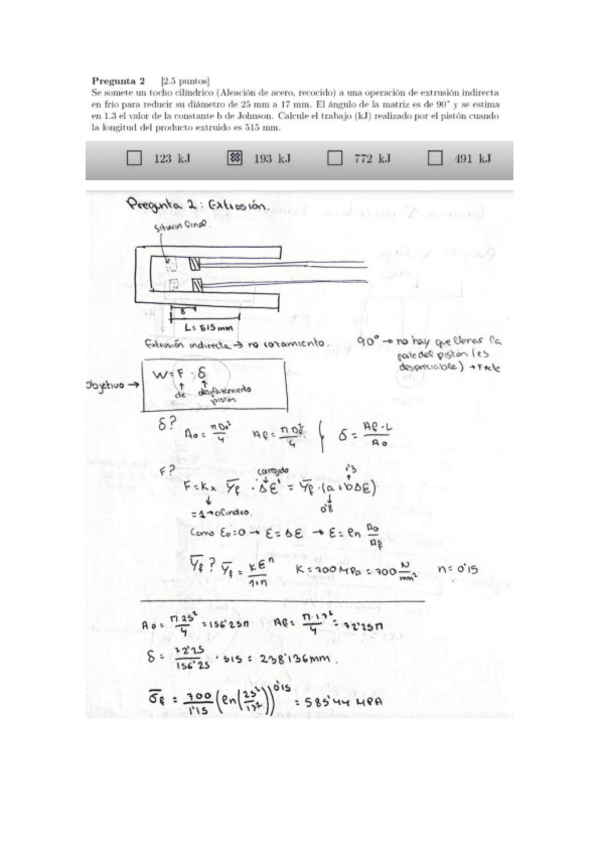 Pregunta 2 [2.5 puntos]
Se somete un tocho cilíndrico (Aleación de acero, recocido) a una operación de extrusión indirecta
en frío para reducir su diámetro de 25 mm a 17 mm. El ángulo de la matriz es de 90° y se estima
en 1.3 el valor de la constante b de Johnson. Calcule el trabajo (kJ) realizado por el pistón cuando
la longitud del producto extruido es 515 mm.
123 kJ 193 kJ 772 kJ 491 kJ
Pregunta 2: Extrusión.
Situación final.
δ
L = 515mm
Extrusión indirecta → no rozamiento. 90° → no hay que llenar la
parte del pistón (es
despreciable) → Fácil
Objetivo → W = F · δ
de desplazamiento
pistón
δ? A₀ = πD₀²/4 Af = πDf²/4 δ = Af·L/A₀
F? corregido 1'3
F = Kx Ȳf · Δε' = Ȳf · (a + bΔε)
= 1 → cilindro. 0'8
Como ε₀=0 → ε = Δε → ε = ln A₀/Af
Ȳf? Ȳf = kεⁿ/1+n K = 700 MPa = 700 N/mm² n = 0'15
A₀ = π25²/4 = 156'25π Af = π·17²/4 = 72'25π
δ = 72'25/156'25 · 515 = 238'136mm.
σ̄f = 700/1'15 (ln(25²/17²))^0'15 = 585'44 MPA